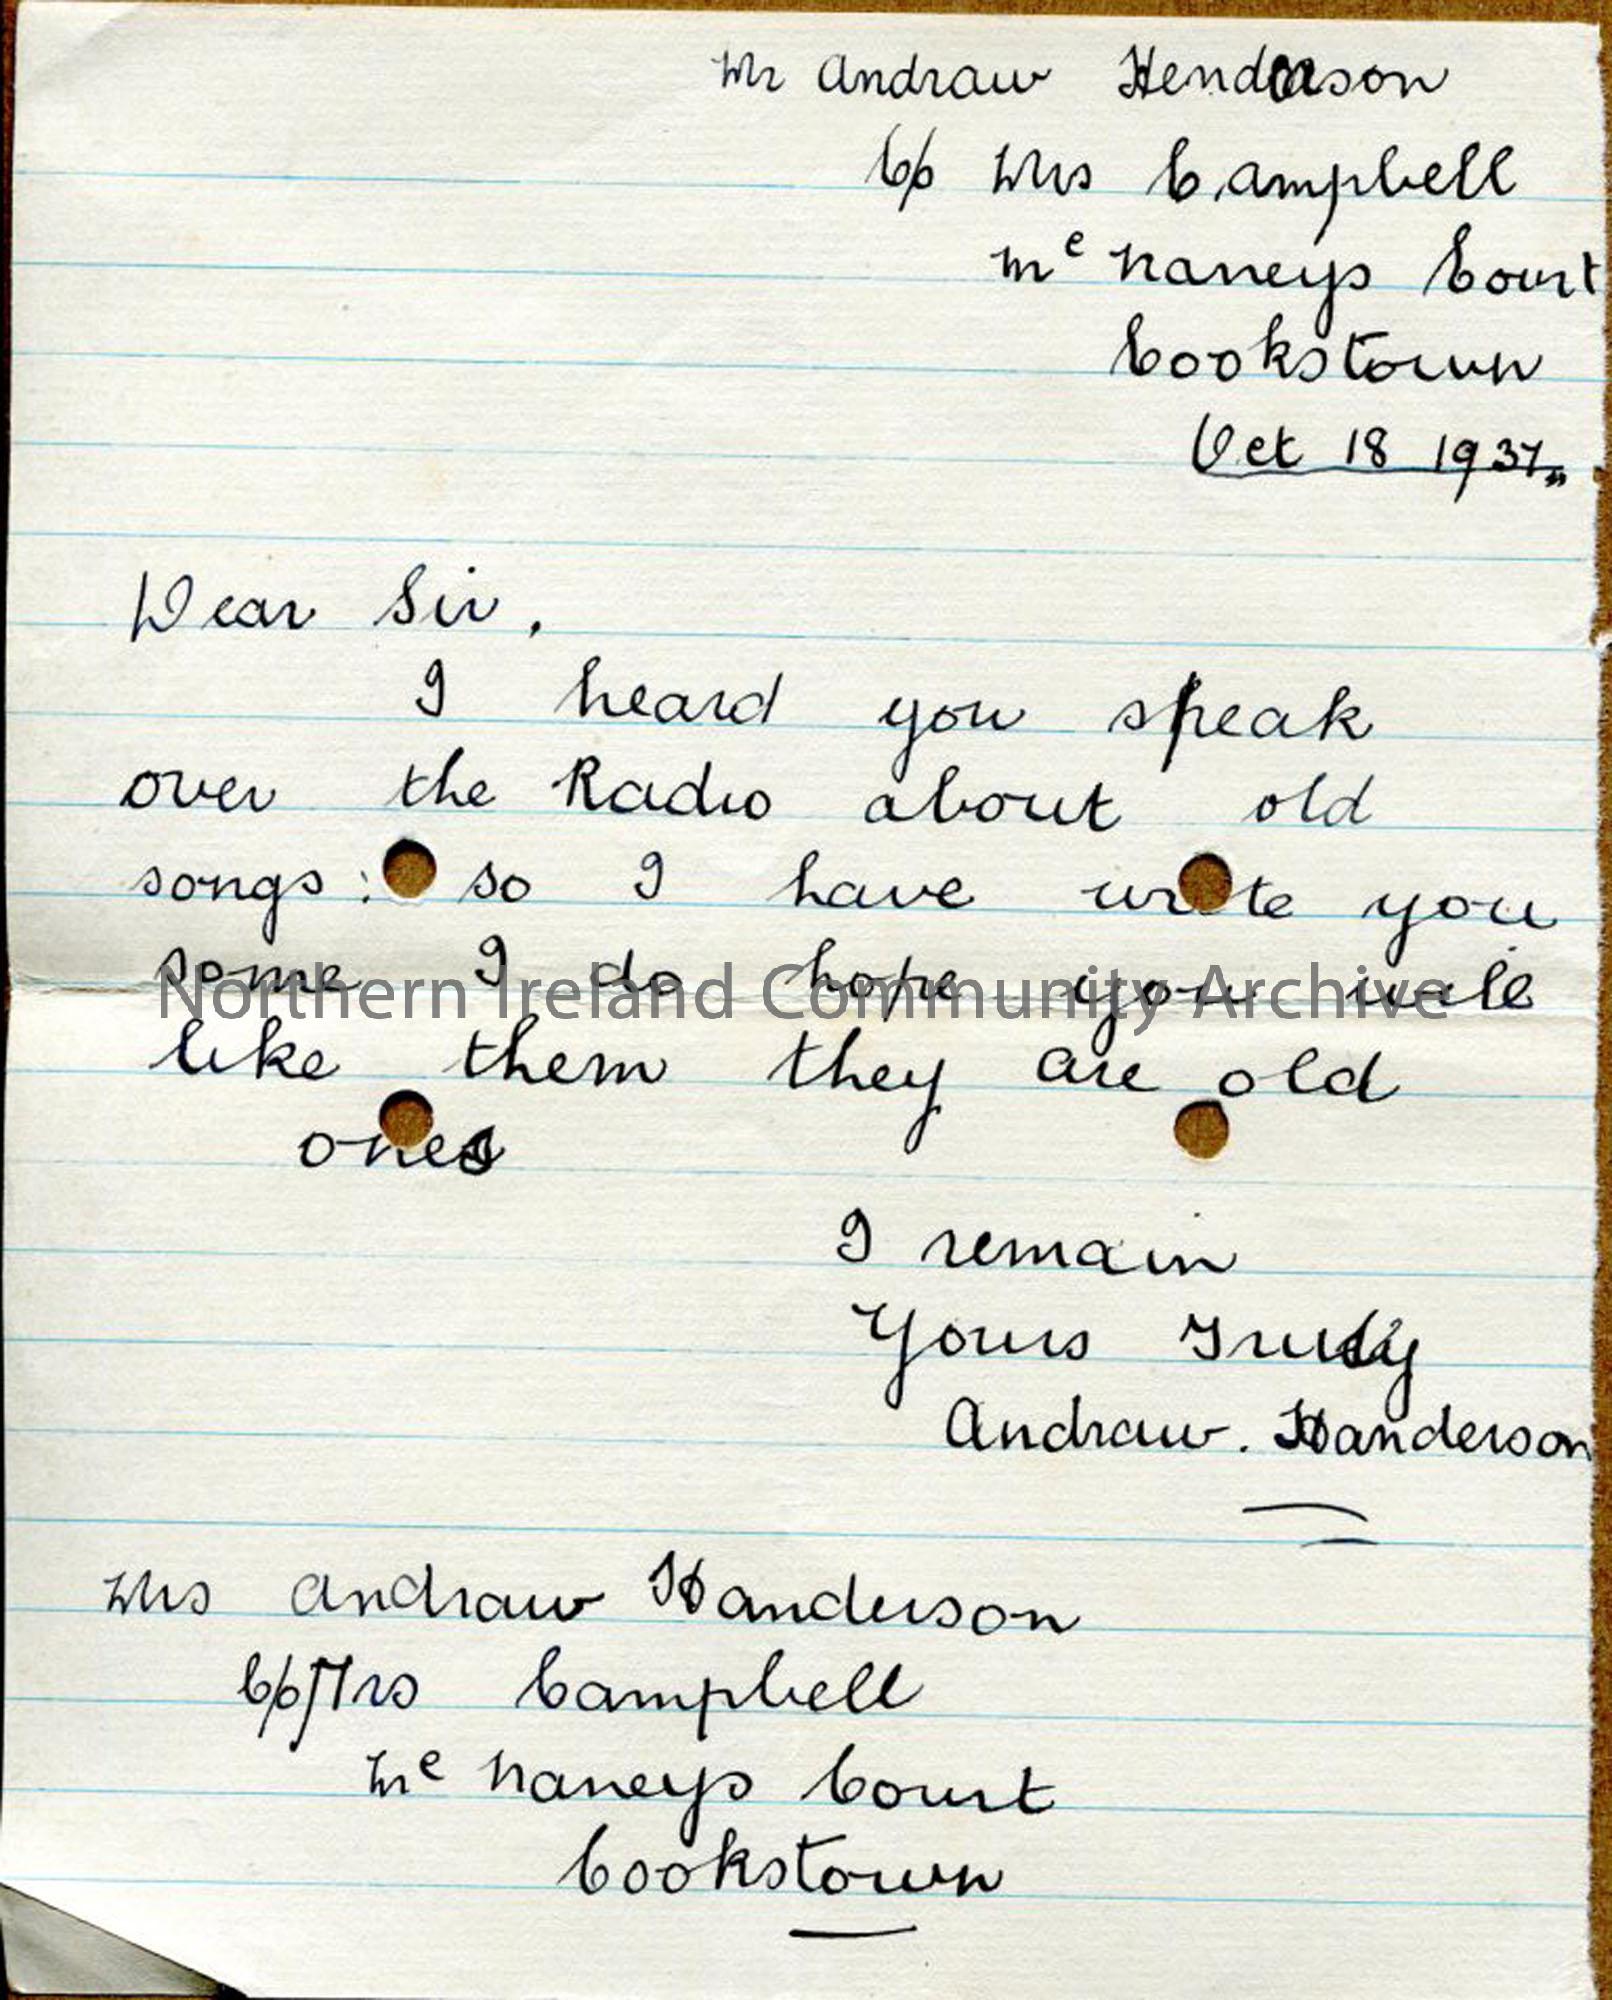 Mr Andraw Henderson
C/o Mrs Campbell
Mc Naneys Court
Cookstown
Oct 18 1937
Dear Sir,
I heard you speak
over the Radio about old
songs: so I have wrote you
some I do hope you will
Northern Ireland Community Archive
like them they are old
ones
I remain
Yours Truly
Andraw. Handerson
Mrs Andraw Handerson
C/o Mrs Campbell
Mc Naneys Court
Cookstown